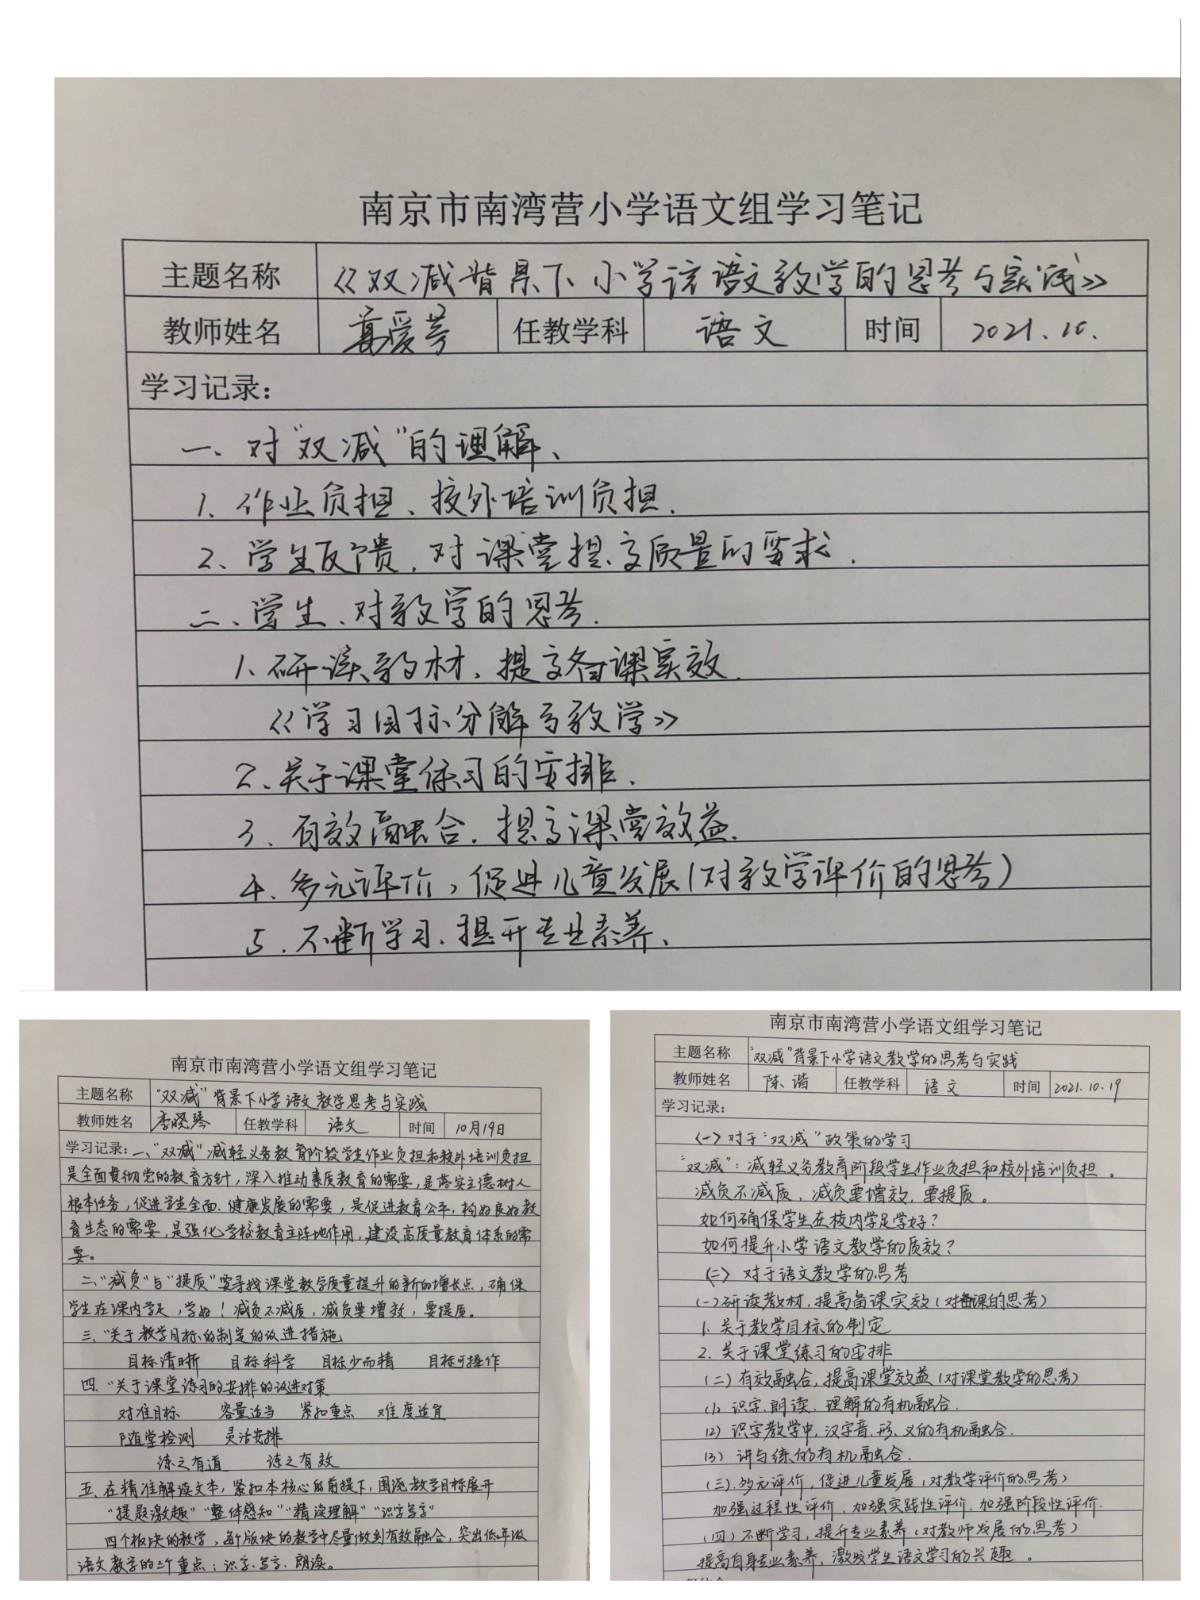 南京市南湾营小学语文组学习笔记
主题名称 《双减背景下小学语文教学的思考与实践》
教师姓名 葛爱琴 任教学科 语文 时间 2021.10.
学习记录:
一、对"双减"的理解、
1、作业负担、校外培训负担.
2、学生反馈,对课堂提高质量的要求.
二、学生、对教学的思考.
1、研读教材,提高备课实效.
《学习目标分解与教学》
2、关于课堂练习的安排.
3、有效融合,提高课堂效益.
4、多元评价,促进儿童发展(对教学评价的思考)
5、不断学习、提升专业素养、
南京市南湾营小学语文组学习笔记
主题名称 "双减"背景下小学语文教学思考与实践
教师姓名 李晓琴 任教学科 语文 时间 10月19日
学习记录:一、"双减"减轻义务教育阶段学生作业负担和校外培训负担
是全面贯彻党的教育方针,深入推动素质教育的需要,是落实立德树人
根本任务,促进学生全面、健康发展的需要,是促进教育公平,构好良好教
育生态的需要,是强化学校教育主阵地作用,建设高质量教育体系的需
要。
二、"减负"与"提质"要寻找课堂教学质量提升的新的增长点,确保
学生在课内学足,学好!减负不减质,减负要增效,要提质。
三、"关于教学目标的制定的改进措施
目标清晰 目标科学 目标少而精 目标可操作
四、"关于课堂练习的安排的改进对策
对准目标 容量适当 紧扣重点 难度适宜
随堂检测 灵活安排
练之有道 练之有效
五、在精准解读文本,紧扣本核心的前提下,围绕教学目标展开
"提题激趣""整体感知""精读理解""识字写字"
四个板块的教学,每个版块的教学尽量做到有效融合,突出低年级
语文教学的三个重点:识字、写字、朗读。
南京市南湾营小学语文组学习笔记
主题名称 "双减"背景下小学语文教学的思考与实践
教师姓名 陈谐 任教学科 语文 时间 2021.10.19
学习记录:
(一)对于"双减"政策的学习
"双减":减轻义务教育阶段学生作业负担和校外培训负担。
减负不减质,减负要增效,要提质。
如何确保学生在校内学足学好?
如何提升小学语文教学的质效?
(二)对于语文教学的思考
(一)研读教材,提高备课实效(对备课的思考)
1. 关于教学目标的制定
2. 关于课堂练习的安排
(二)有效融合,提高课堂效益(对课堂教学的思考)
(1)识字、朗读、理解的有机融合.
(2)识字教学中,汉字音、形、义的有机融合.
(3)讲与练的有机融合.
(三)多元评价,促进儿童发展(对教学评价的思考)
加强过程性评价、加强实践性评价、加强阶段性评价.
(四)不断学习,提升专业素养(对教师发展的思考)
提高自身专业素养,激发学生语文学习的兴趣。